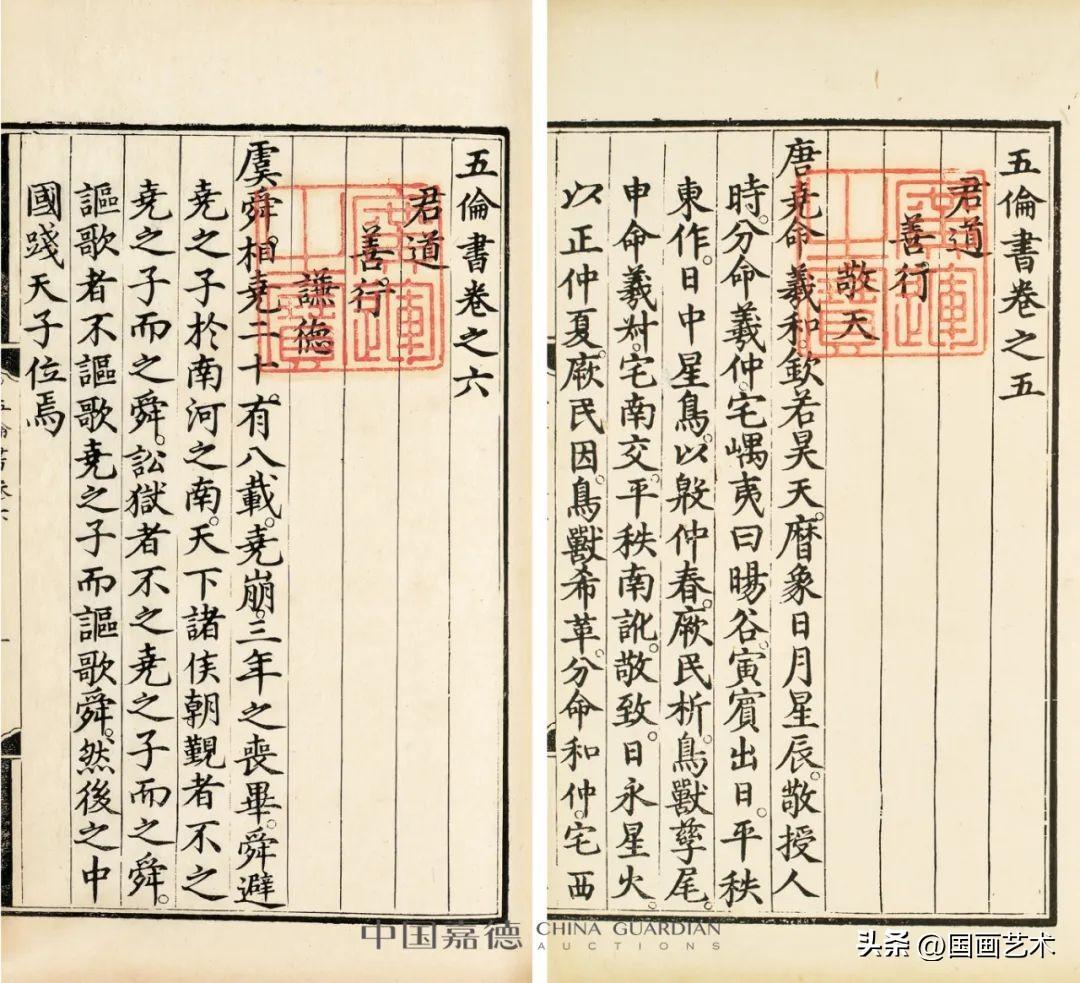 五倫書卷之五
君道
善行
敬天
唐堯命羲和。欽若昊天。曆象日月星辰。敬授人
時。分命羲仲。宅嵎夷曰暘谷。寅賓出日。平秩
東作。日中星鳥。以殷仲春。厥民析。鳥獸孳尾。
申命羲叔。宅南交。平秩南訛。敬致。日永星火。
以正仲夏。厥民因。鳥獸希革。分命和仲。宅西
五倫書卷之六
君道
善行
謙德
虞舜相堯二十。有八載。堯崩。三年之喪畢。舜避
堯之子於南河之南。天下諸侯朝覲者不之
堯之子而之舜。訟獄者不之堯之子而之舜。
謳歌者不謳歌堯之子而謳歌舜。然後之中
國踐天子位焉
中国嘉德 CHINA GUARDIAN
AUCTIONS
头条 @国画艺术